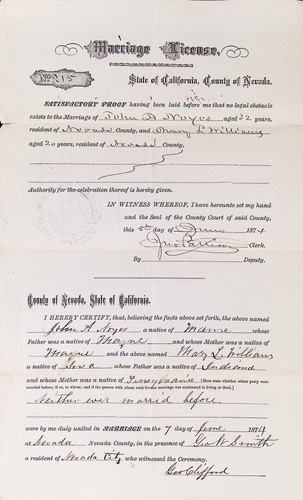 Marriage License.
No. 215
State of California, County of Nevada.
SATISFACTORY PROOF having been laid before me that no legal obstacle
exists to the Marriage of John A Noyes aged 32 years,
resident of Nevada County, and Mary L Williams
aged 20 years, resident of Nevada County,
Authority for the celebration thereof is hereby given.
IN WITNESS WHEREOF, I have hereunto set my hand
and the Seal of the County Court of said County,
this 5th day of June 1874
Clerk.
By Deputy.
County of Nevada, State of California.
I HEREBY CERTIFY, that, believing the facts above set forth, the above named
John A. Noyes a native of Maine whose
Father was a native of Mayne and whose Mother was a native of
Mayne and the above named Mary L Williams
a native of Iowa whose Father was a native of Indiana
and whose Mother was a native of
[Here state whether either party were
married before, if so, to whom; and if the person with whom such earlier marriage was contracted is living or dead.]
Neither ever married before
were by me duly united in MARRIAGE on the 7 day of June 1874
at Nevada Nevada County, in the presence of Geo W. Smith
a resident of Nevada City, who witnessed the Ceremony.
Geo Clifford